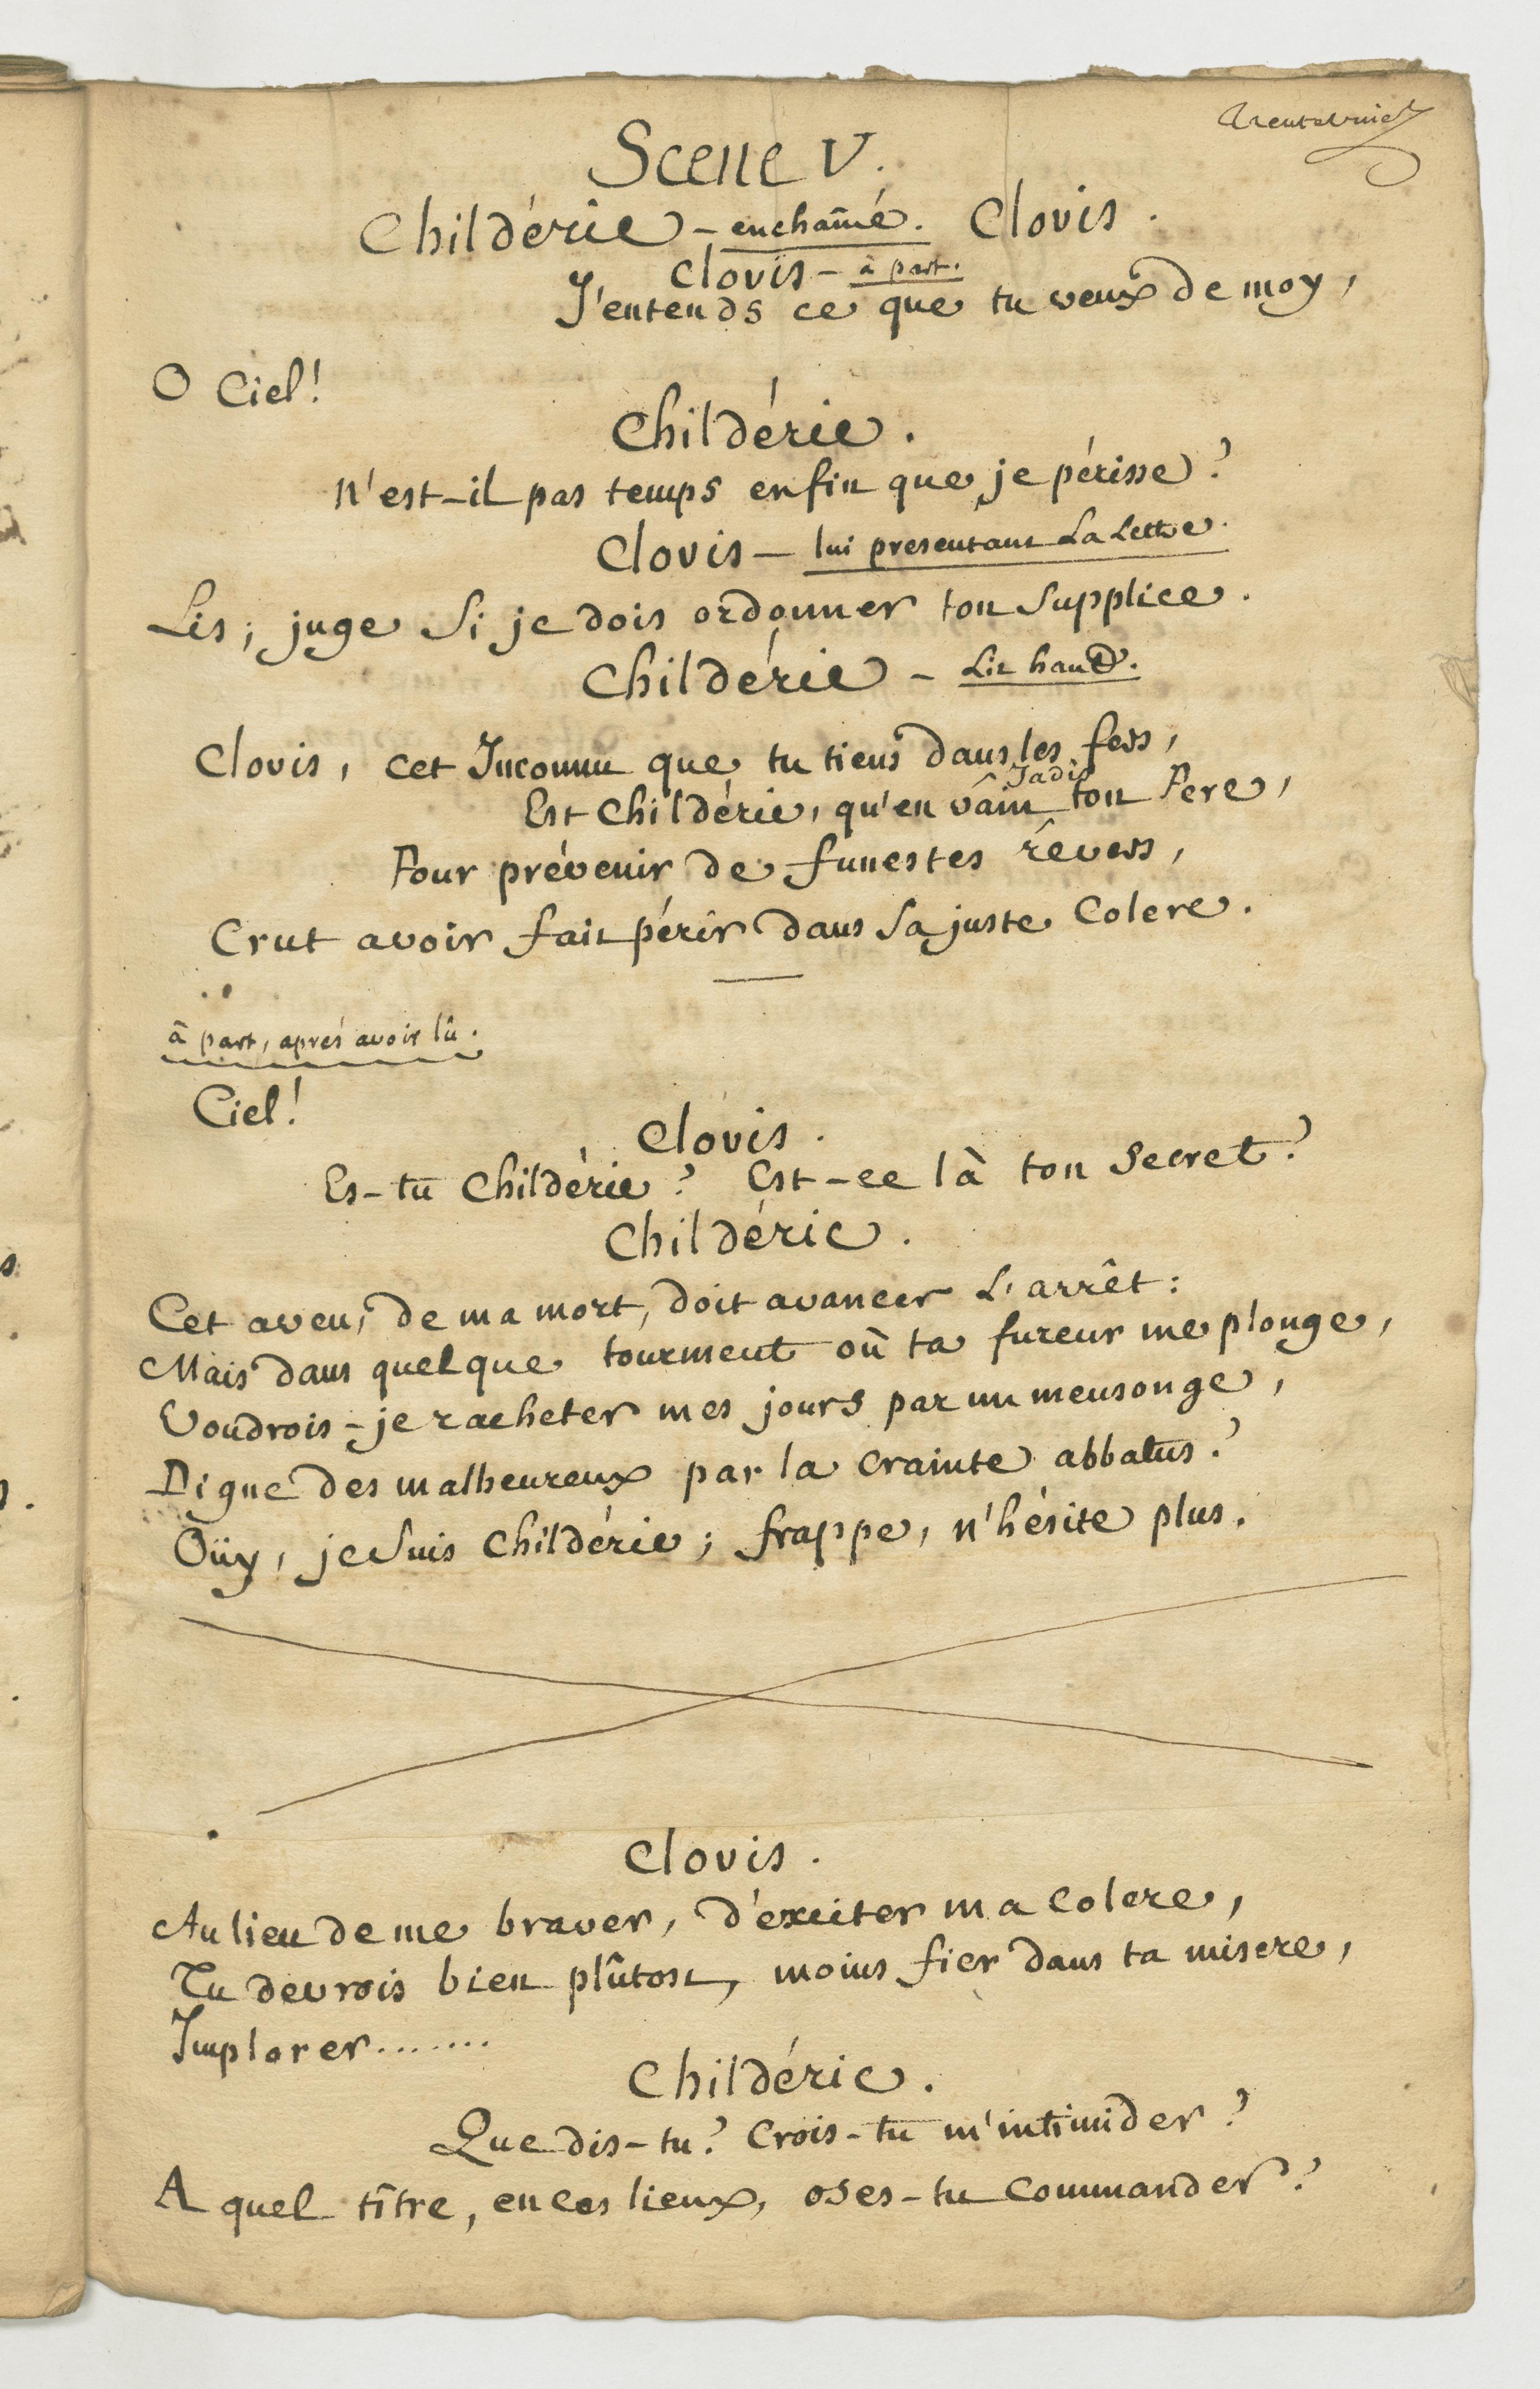 Trente-unie
Scene V.
Childéric - enchaîné. Clovis.
Clovis - à part.
J'entends ce que tu veux de moy,
O Ciel!
Childéric.
N'est-il pas temps enfin que je périsse?
Clovis - lui presentant La Lettre.
Lis; juge Si je dois ordonner ton Supplice.
Childéric - Lit haut.
Clovis, cet Inconnu que tu tiens dans les fers,
Jadis
Est Childéric, qu'en vâin ton Pere,
Pour prévenir de funestes rêvers,
Crut avoir fait périr dans Sa juste Colere.
à part, aprés avoir lû.
Ciel!
Clovis.
Es-tu Childéric? Est-ce là ton Secret?
Childéric.
Cet aveu, de ma mort, doit avancer L'arrêt:
Mais dans quelque tourment où ta fureur me plonge,
Voudrois-je racheter mes jours par un mensonge,
Digne des malheureux par la crainte abbatus?
Oüy, je Suis Childéric; frappe, n'hésite plus.
Clovis.
Au lieu de me braver, d'exciter ma colere,
Tu devrois bien plûtost, moins fier dans ta misere,
Implorer........
Childéric.
Que dis-tu? Crois-tu m'intimider?
A quel tître, en ces lieux, oses-tu Commander?